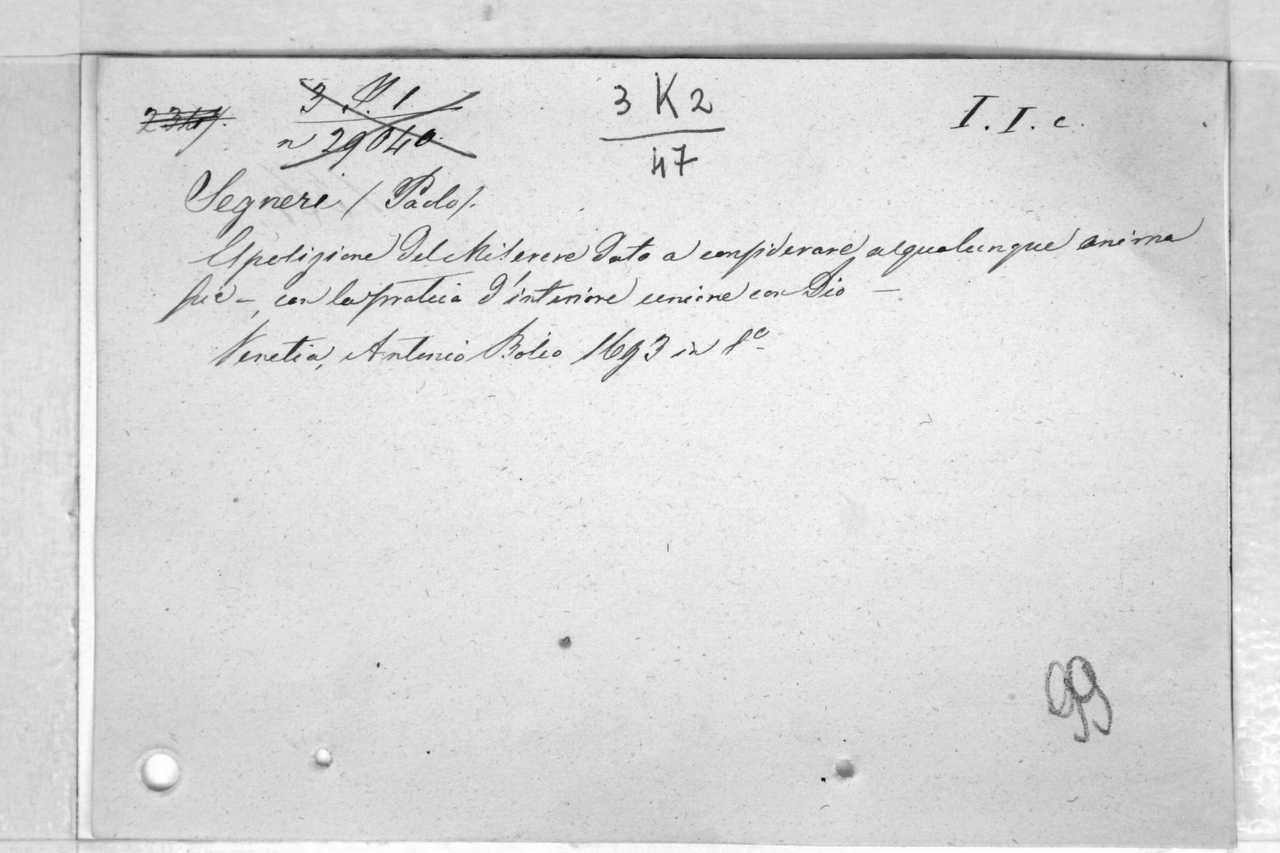 3 P. 1
n 29040.
3 K 2
47
I. I. c.
Segneri (Paolo).
Esposizione del Miserere dato a considerare a qualunque anima
pia –, con la pratica d'interiore unione con Dio –
Venetia, Antonio 1693 in 8º
99